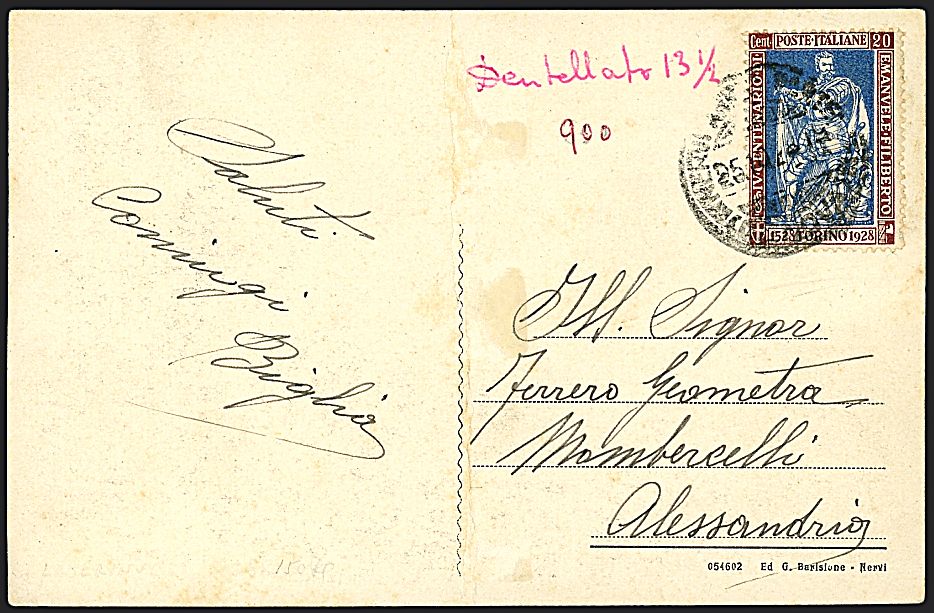 Dentellato 13 ½
900
Cent. POSTE·ITALIANE 20
IV CENTENARIO DI
EMANVELE FILIBERTO
1528 TORINO 1928
Saluti
Comingi
Biglia
Ill. Signor
Ferrero Geometra
Mombercelli
Alessandria
054602 Ed G. Barisione - Nervi